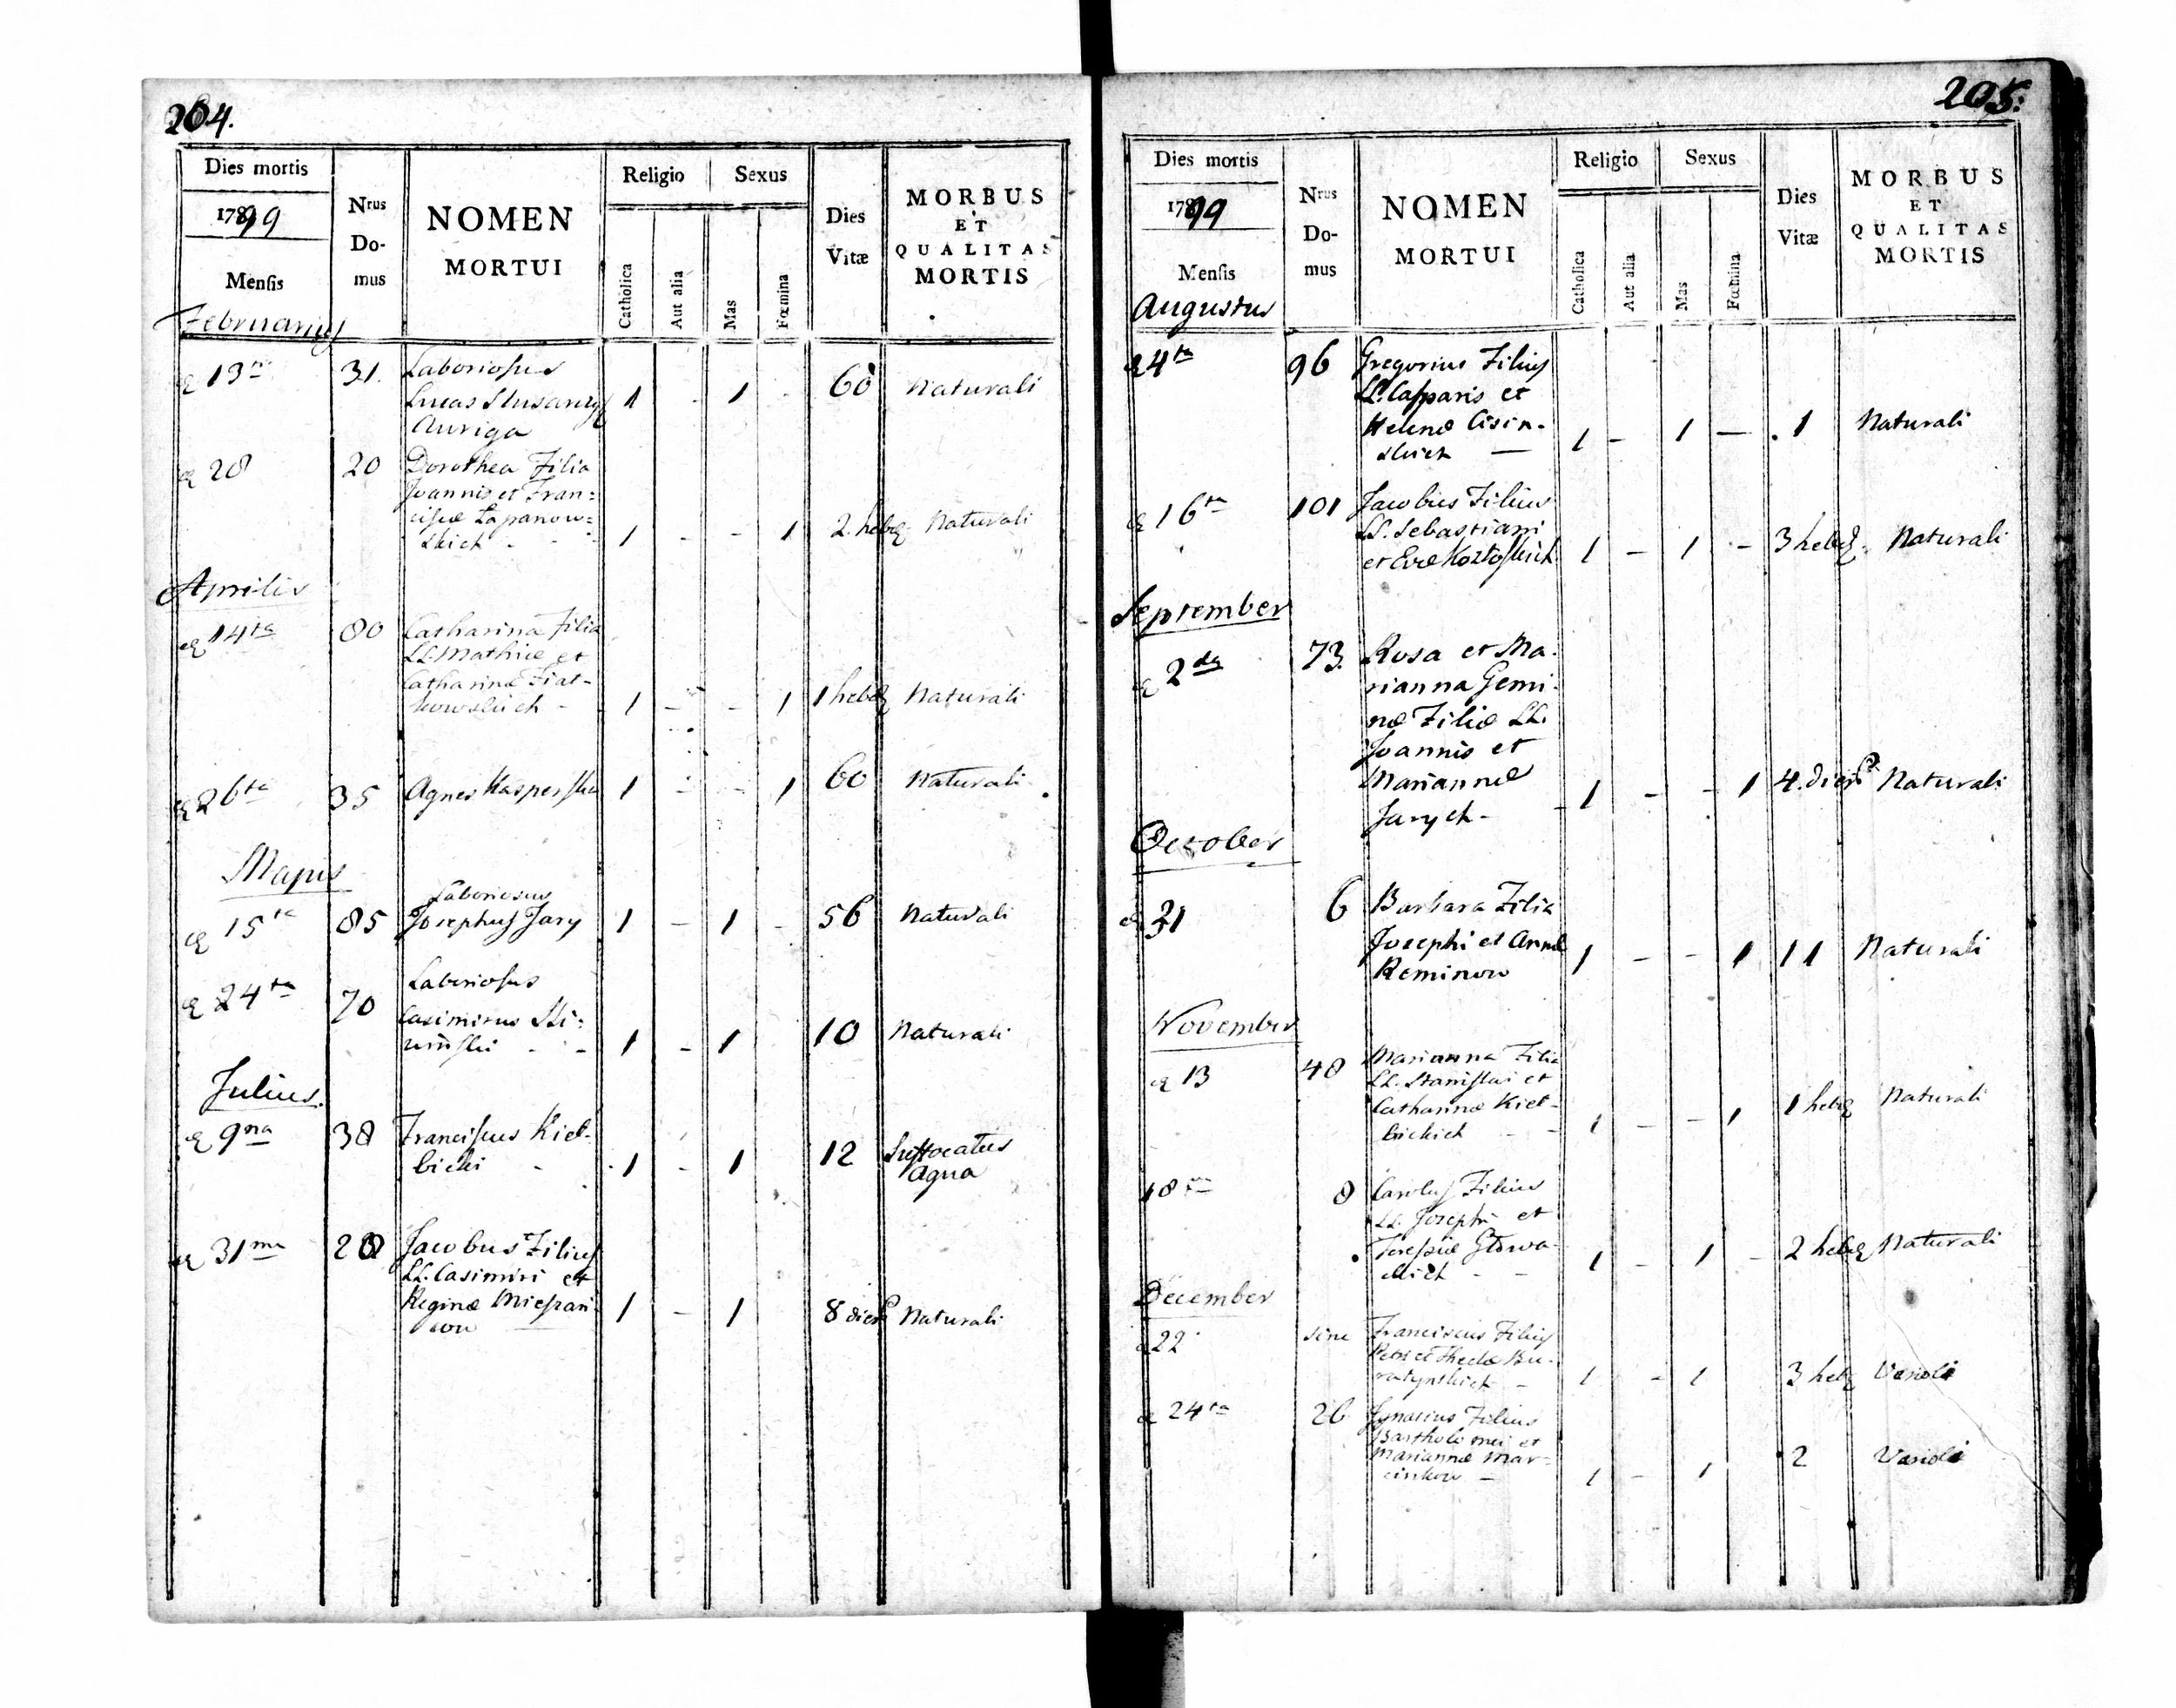 204.
Dies mortis
1799
Mensis
Februarius
Nrus
Do-
mus
NOMEN
MORTUI
Religio
Sexus
Catholica
Aut alia
Mas
Fœmina
Dies
Vitæ
MORBUS
ET
QUALITAS
MORTIS
13
31.
Laboriosus
Lucas
Auriga
1 - 1 - 60 Naturali
28 20 Dorothea Filia
Joannis et Fran=
ciscæ Łapanow=
skich - -
1 - - 1 2. hebd Naturali
Aprilis
14ta 80 Catharina Filia
LL. Mathiæ et
Catharinæ Fiał-
kowskich -
1 - - 1 1 hebd Naturali
26ta 35 Agnes Kasperska 1 - - 1 60 Naturali
Majus
15ta 85 Laboriosus
Josephus Jary 1 - 1 - 56 Naturali
24ta 70 Laboriosus
Casimirus
1 - 1 10 Naturali
Julius.
9na 38 Franciscus Kieł-
bicki - 1 - 1 12 Suffocatus
Aqua
31ma 28 Jacobus Filius
LL. Casimiri et
Reginæ
cow
1 - 1 8 dier Naturali
205.
Dies mortis
1799
Mensis
Augustus
Nrus
Do-
mus
NOMEN
MORTUI
Religio
Sexus
Catholica
Aut alia
Mas
Fœmina
Dies
Vitæ
MORBUS
ET
QUALITAS
MORTIS
4ta 96 Gregorius Filius
LL. Casparis et
Helenæ Cisin-
skich —
1 - 1 — 1 Naturali
16ta 101 Jacobus Filius
LL. Sebastiani
et Evæ Kozłoskich
1 - 1 - 3 hebd. Naturali
September
2da 73. Rosa et Ma-
rianna Gemi-
næ Filiæ LL.
Joannis et
Mariannæ
Jarych -
1 - - 1 4. dier Naturali
October
31 6 Barbara Filia
Josephi et Annæ
Reminow
1 - - 1 11 Naturali
November
13 48 Marianna Filia
LL. Stanislai et
Catharinæ Kieł-
bickich - -
1 - - 1 1 hebd Naturali
18 8 Carolus Filius
LL. Josephi et
Theresiæ Głowa-
ckich - -
1 - 1 - 2 hebd Naturali
December
22 sine Franciscus Filius
Petri et Theclæ Bu-
ratynskich -
1 - 1 3 hebd Varioli
24ta 26 Ignatius Filius
Bartholomei et
Mariannæ Mar-
cinkow -
1 - 1 2 Varioli